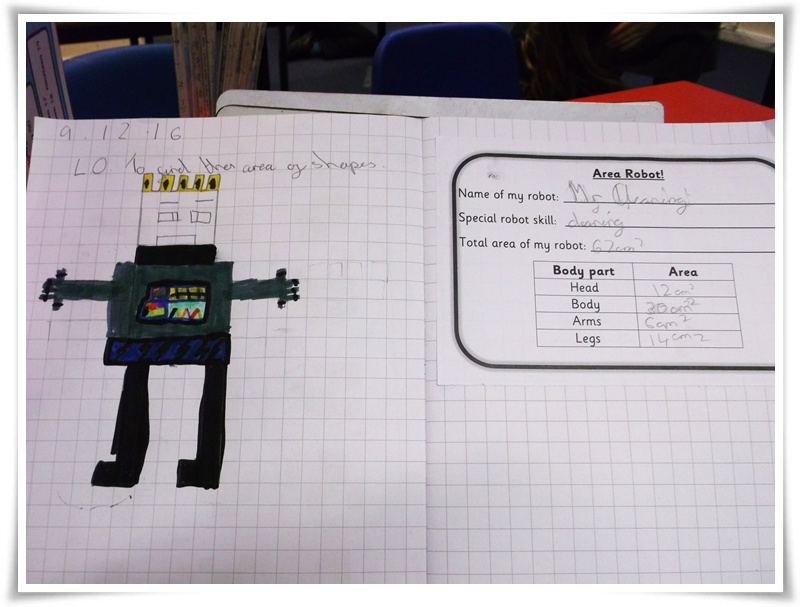 9.12.16
L.O. To find the area of shapes.
Area Robot!
Name of my robot: Mr Cleaning!
Special robot skill: cleaning
Total area of my robot: 62cm²
Body part Area
Head 12cm²
Body 30cm²
Arms 6cm²
Legs 14cm2